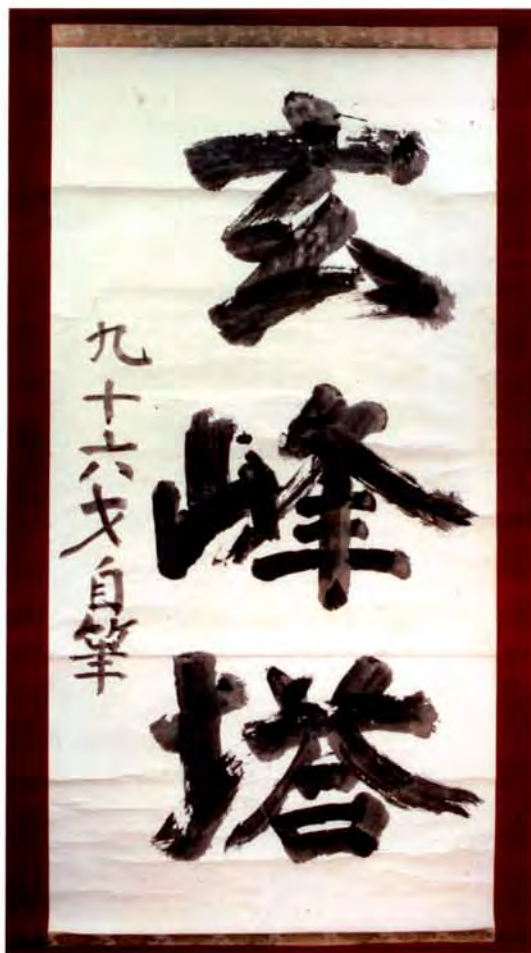 玄峰塔
九十六才自筆